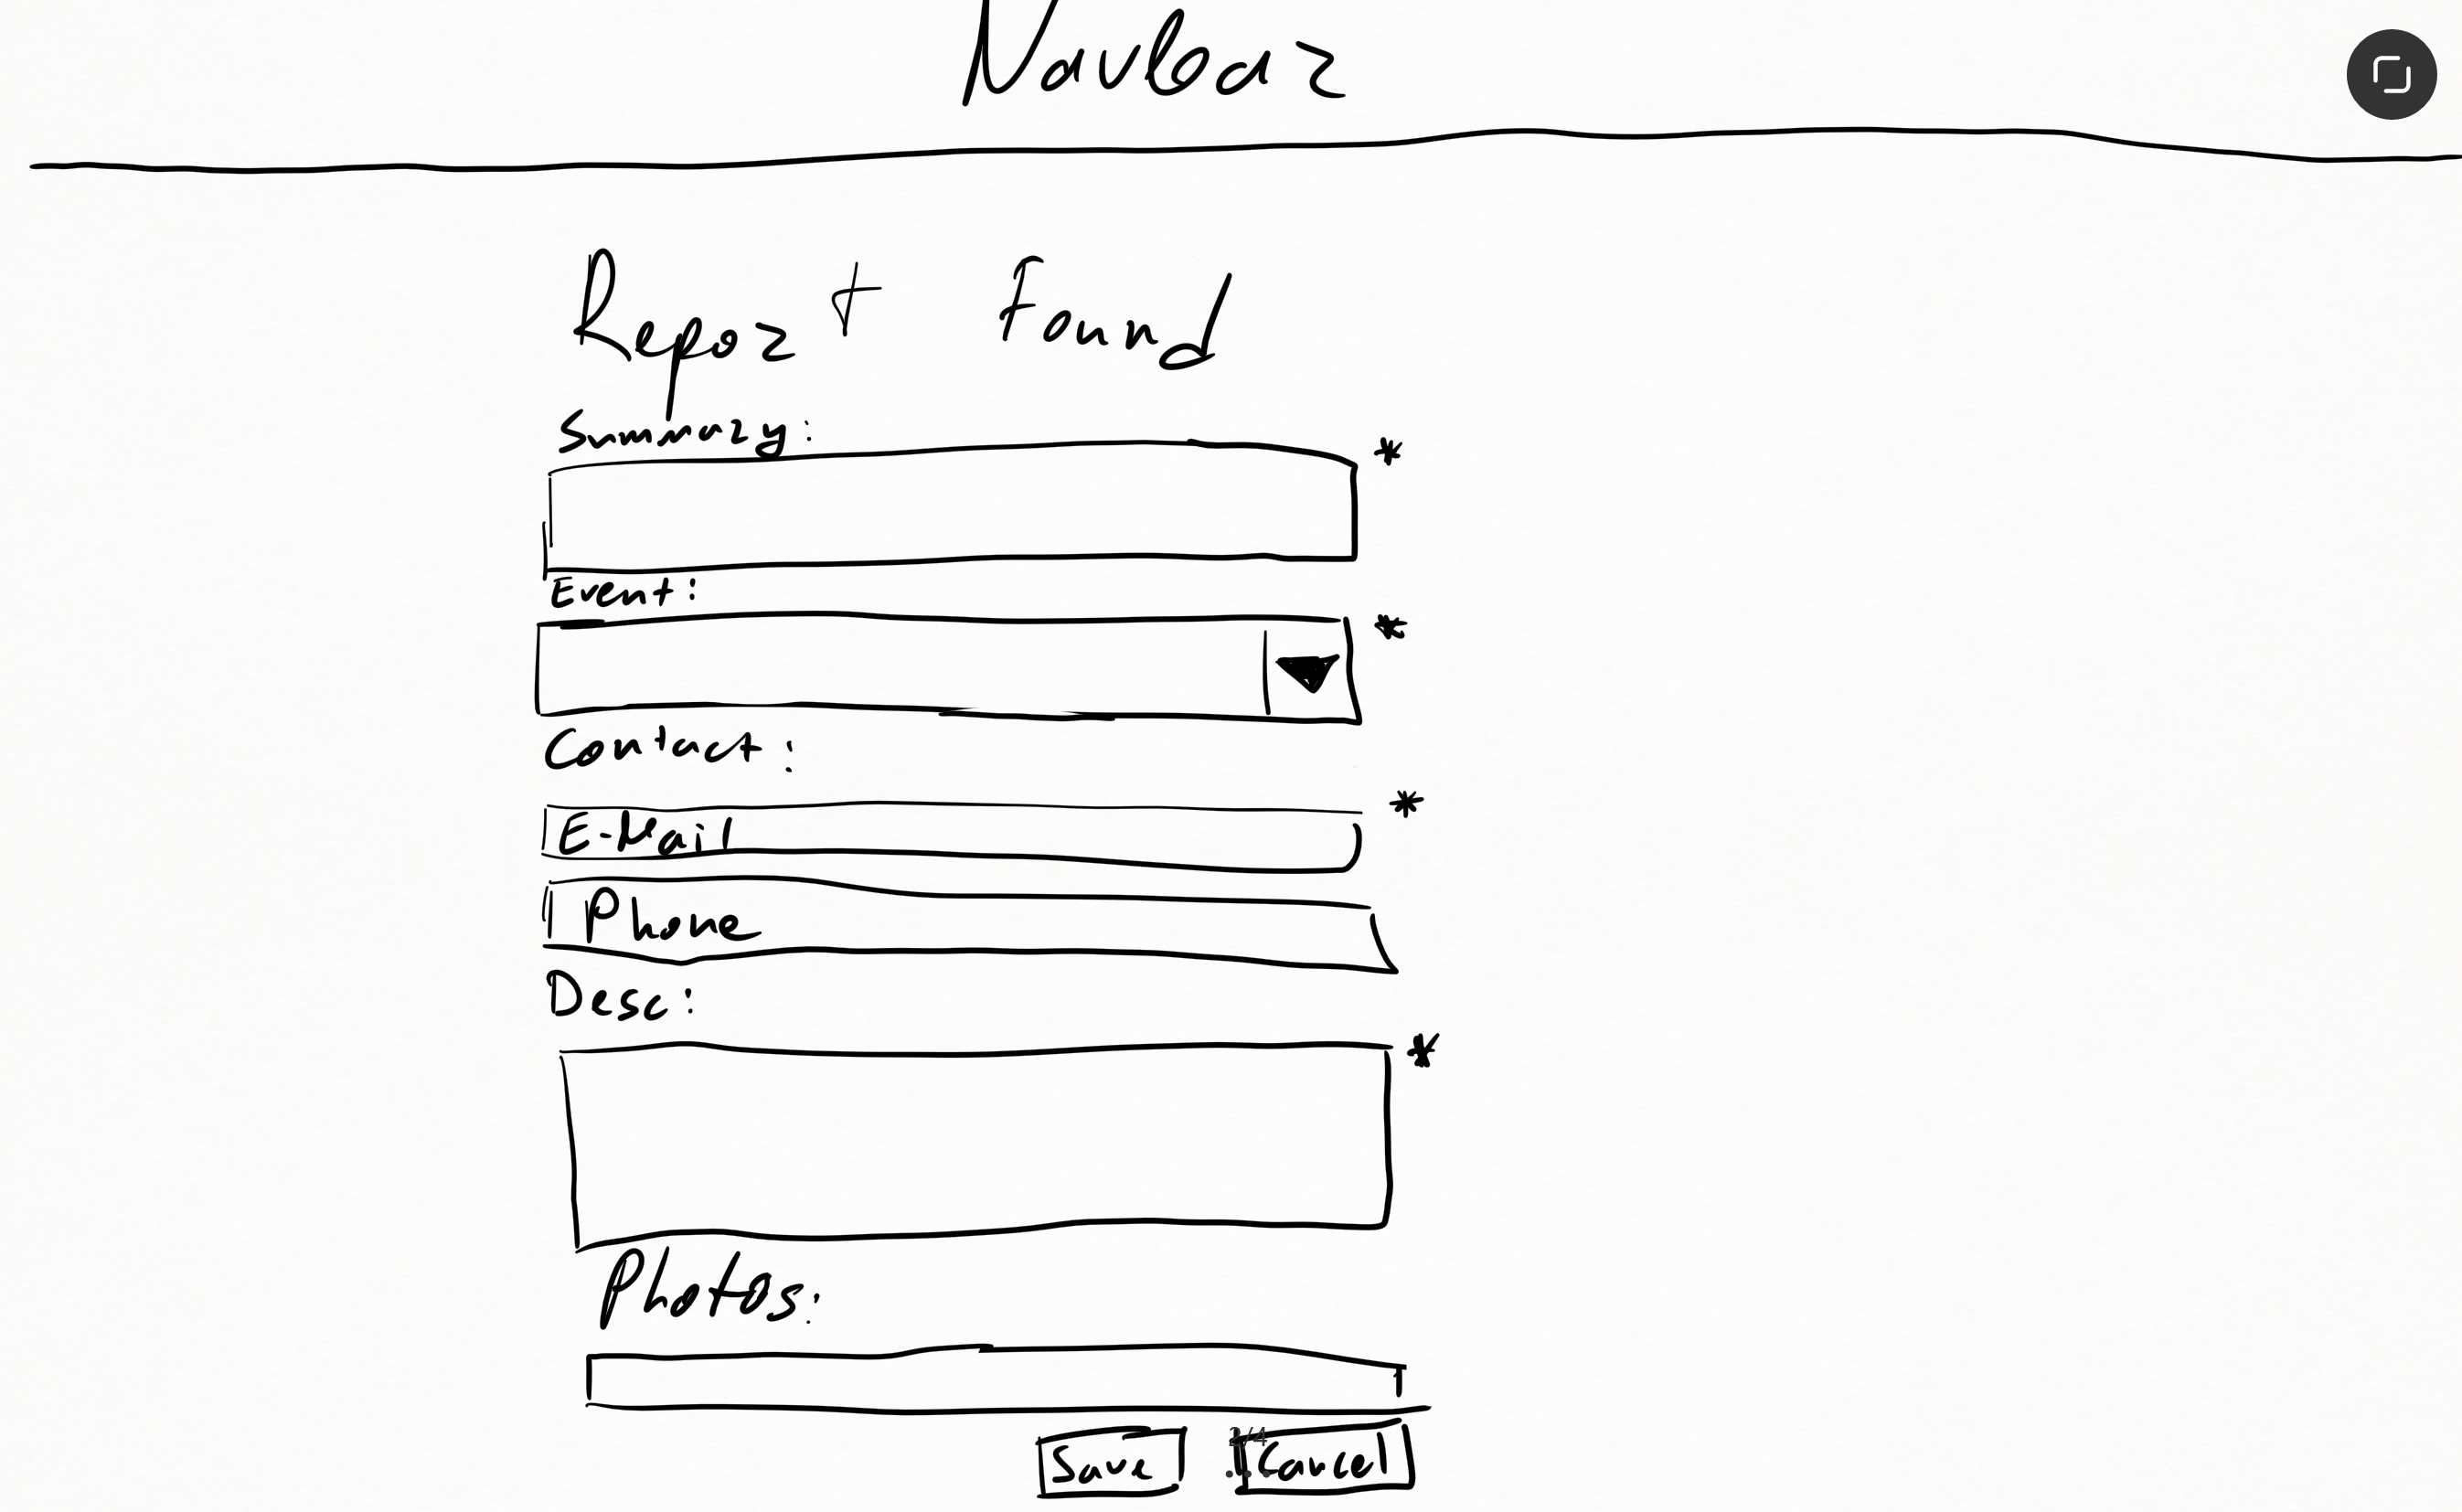 Navbar
Report Found
Summary:
*
Event:
*
Contact:
*
E-Mail
Phone
Desc:
*
Photos:
2/4
Save Cancel